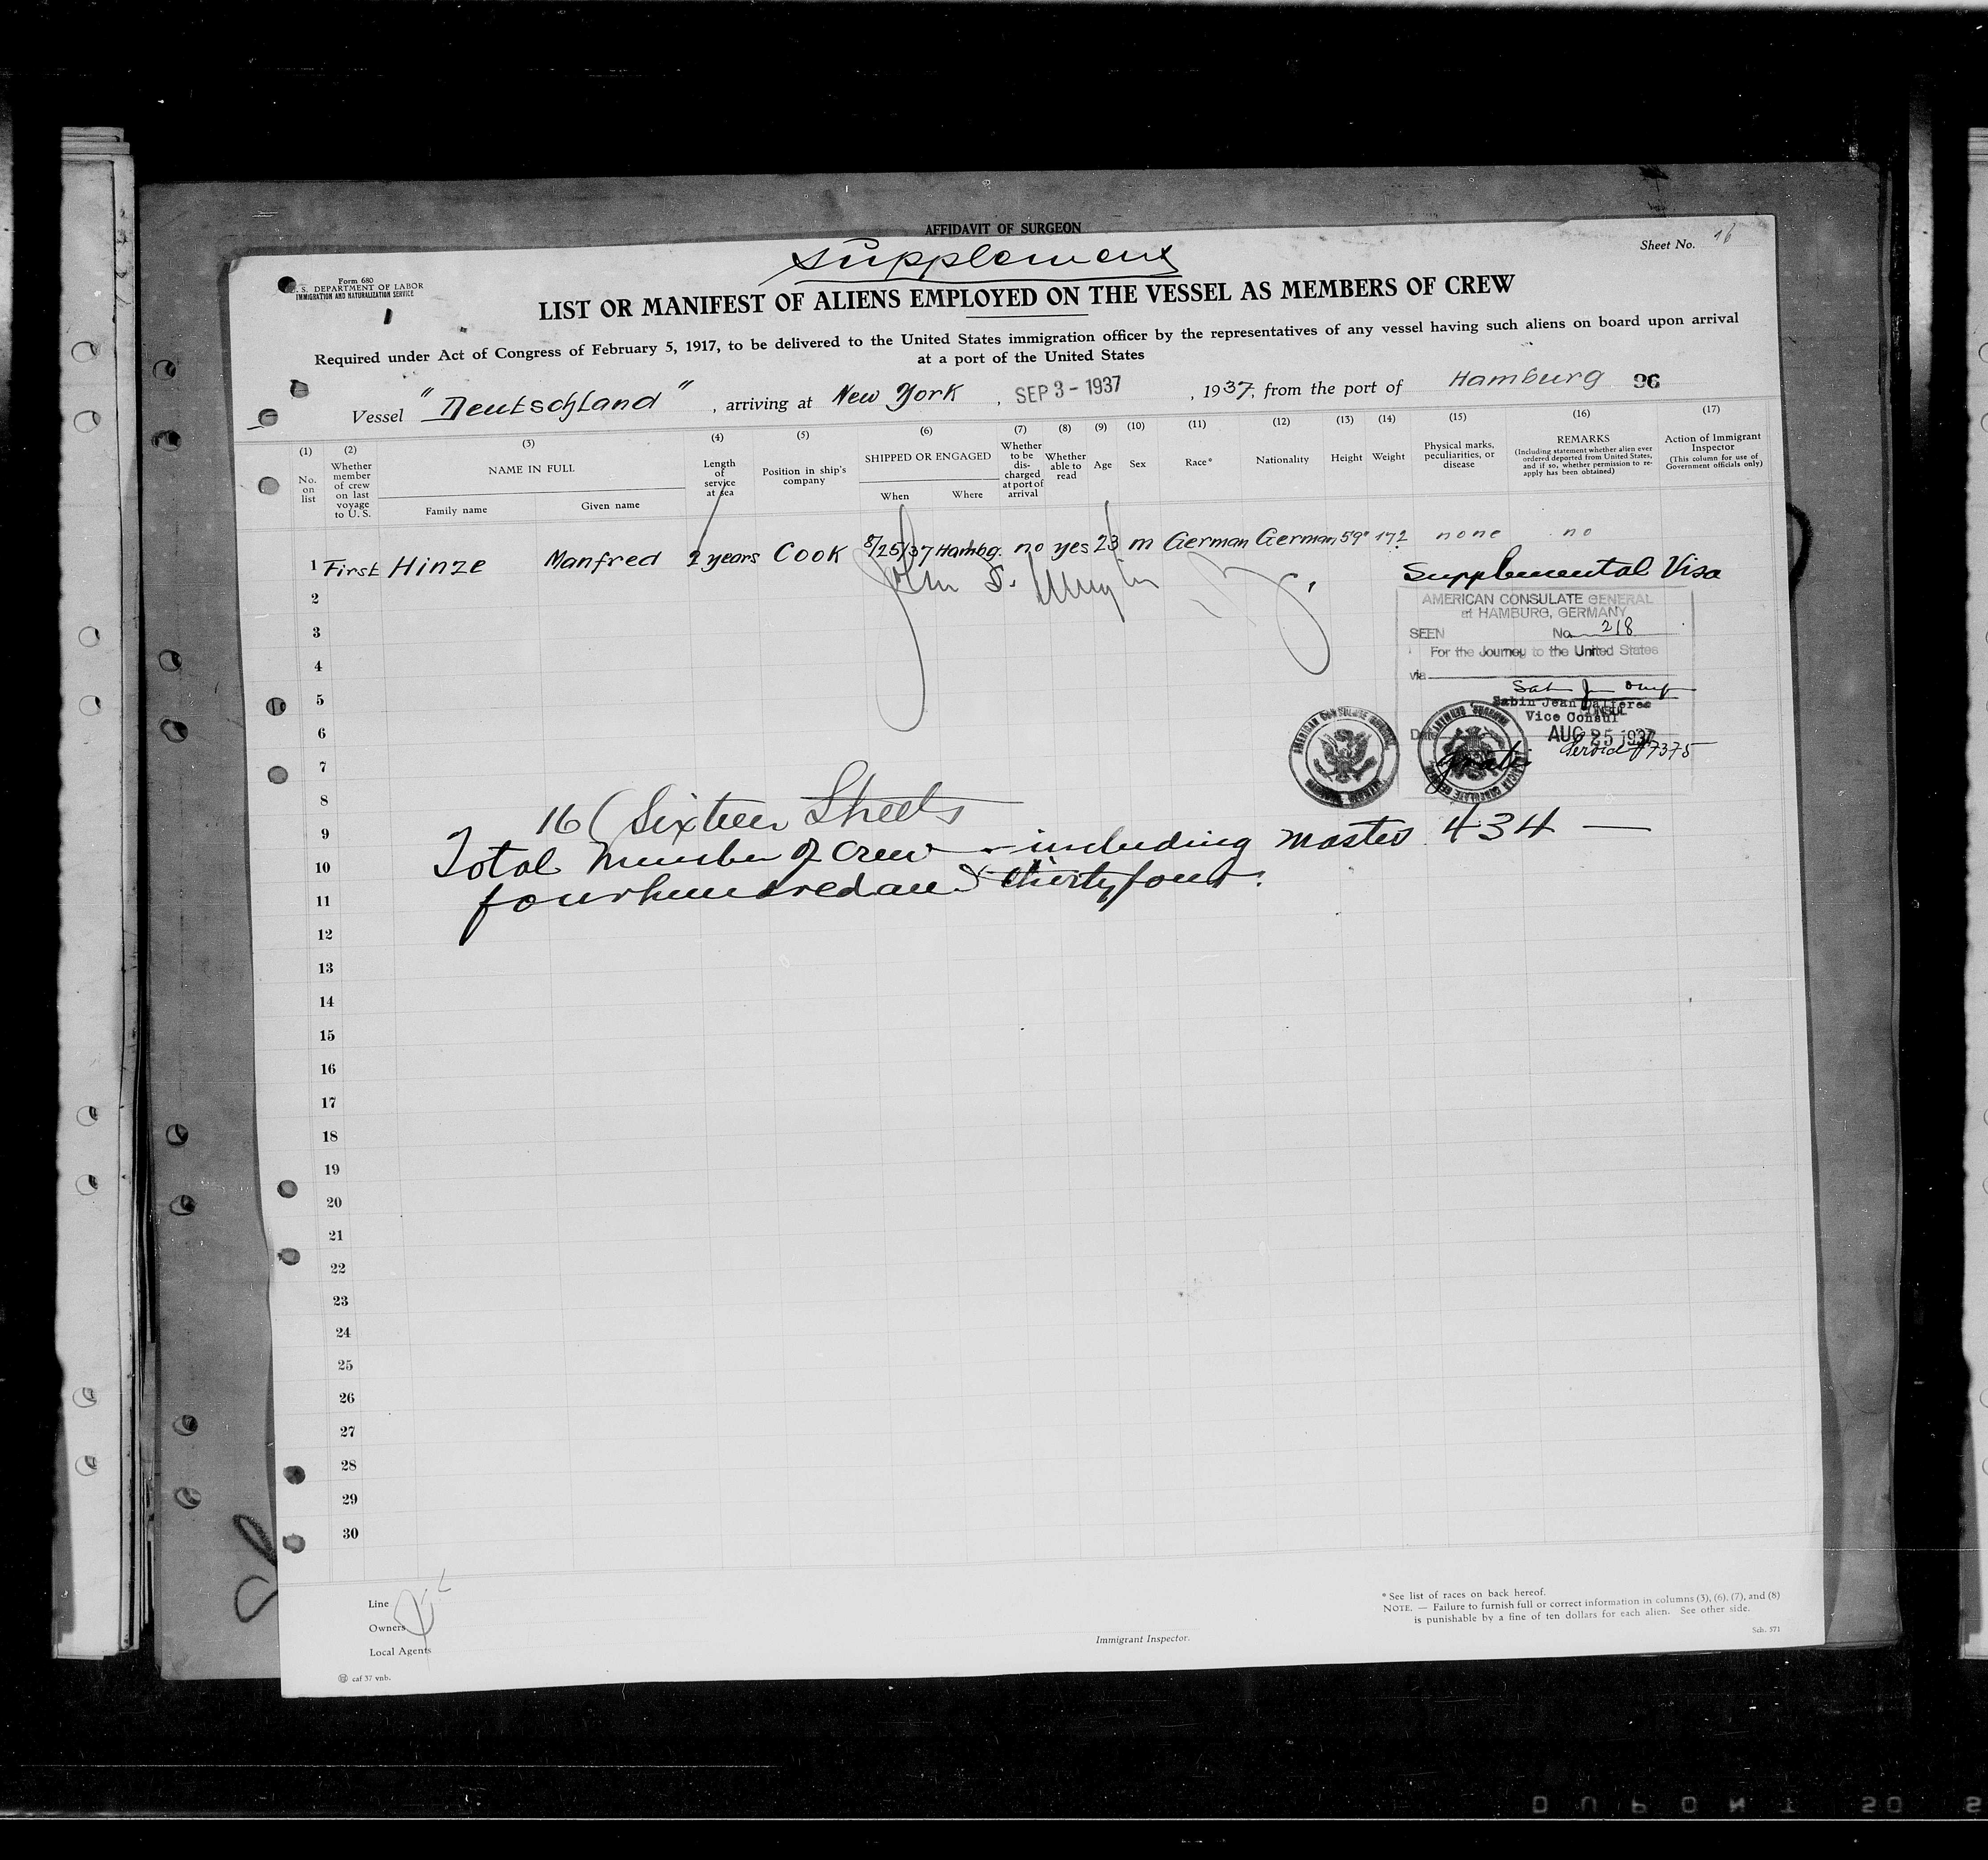 AFFIDAVIT OF SURGEON
Supplement
Sheet No. 16
Form 680
U. S. DEPARTMENT OF LABOR
IMMIGRATION AND NATURALIZATION SERVICE
LIST OR MANIFEST OF ALIENS EMPLOYED ON THE VESSEL AS MEMBERS OF CREW
Required under Act of Congress of February 5, 1917, to be delivered to the United States immigration officer by the representatives of any vessel having such aliens on board upon arrival
at a port of the United States
Vessel "Deutschland", arriving at New York, SEP 3 - 1937, 1937, from the port of Hamburg 96
(1) (2) (3) (4) (5) (6) (7) (8) (9) (10) (11) (12) (13) (14) (15) (16) (17)
No. on list
Whether member of crew on last voyage to U. S.
NAME IN FULL
Family name Given name
Length of service at sea
Position in ship's company
SHIPPED OR ENGAGED
When Where
Whether to be discharged at port of arrival
Whether able to read
Age
Sex
Race*
Nationality
Height
Weight
Physical marks, peculiarities, or disease
REMARKS
(Including statement whether alien ever ordered deported from United States, and if so, whether permission to reapply has been obtained)
Action of Immigrant Inspector
(This column for use of Government officials only)
1 First Hinze Manfred 2 years Cook 8/25/37 Hambg. no yes 23 m German German 5'9" 172 none no
John S.
Supplemental Visa
AMERICAN CONSULATE GENERAL
at HAMBURG, GERMANY
SEEN No. 218
For the Journey to the United States
via
Sabin Jean Dalferes
Vice Consul
Date AUG 25 1937
gratis
Service #7375
2
3
4
5
6
7
8
9
10
11
16 (Sixteen Sheets
Total Number of Crew - including master 434 —
fourhundred and thirtyfour.
12
13
14
15
16
17
18
19
20
21
22
23
24
25
26
27
28
29
30
Line
Owners
Local Agents
Immigrant Inspector.
* See list of races on back hereof.
NOTE. — Failure to furnish full or correct information in columns (3), (6), (7), and (8)
is punishable by a fine of ten dollars for each alien. See other side.
Sch. 571
caf 37 vnb.
DUPONT SO S